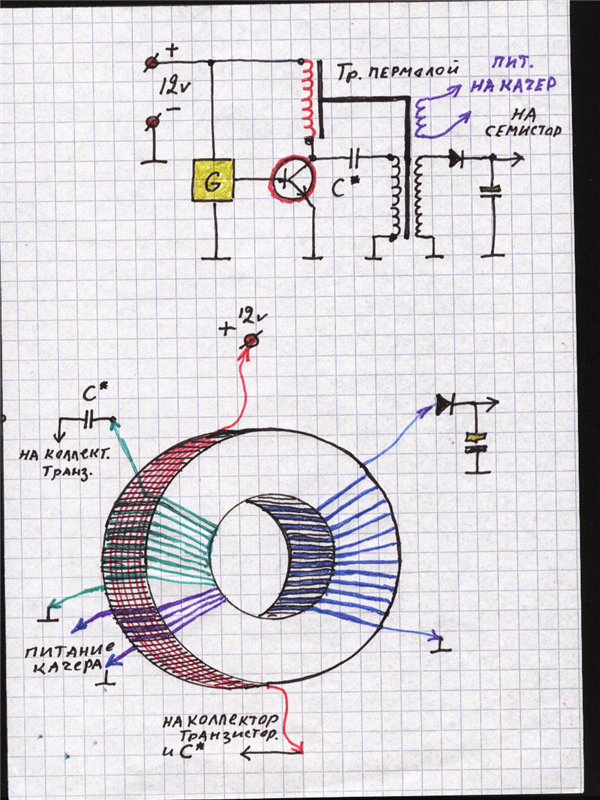 +
12v
−
Тр. ПЕРМАЛОЙ
ПИТ.
НА КАЧЕР
НА
СЕМИСТОР
G
C*
+ 12v
C*
НА КОЛЛЕКТ.
ТРАНЗ.
ПИТАНИЕ
КАЧЕРА
НА КОЛЛЕКТОР
ТРАНЗИСТОР.
и C*